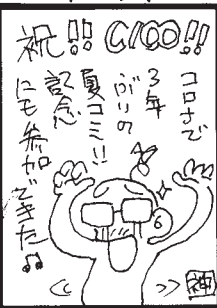 祝!! C100!!
コロナで
3年
ぶりの
夏コミ!!
記念
にも参加できた♫
神